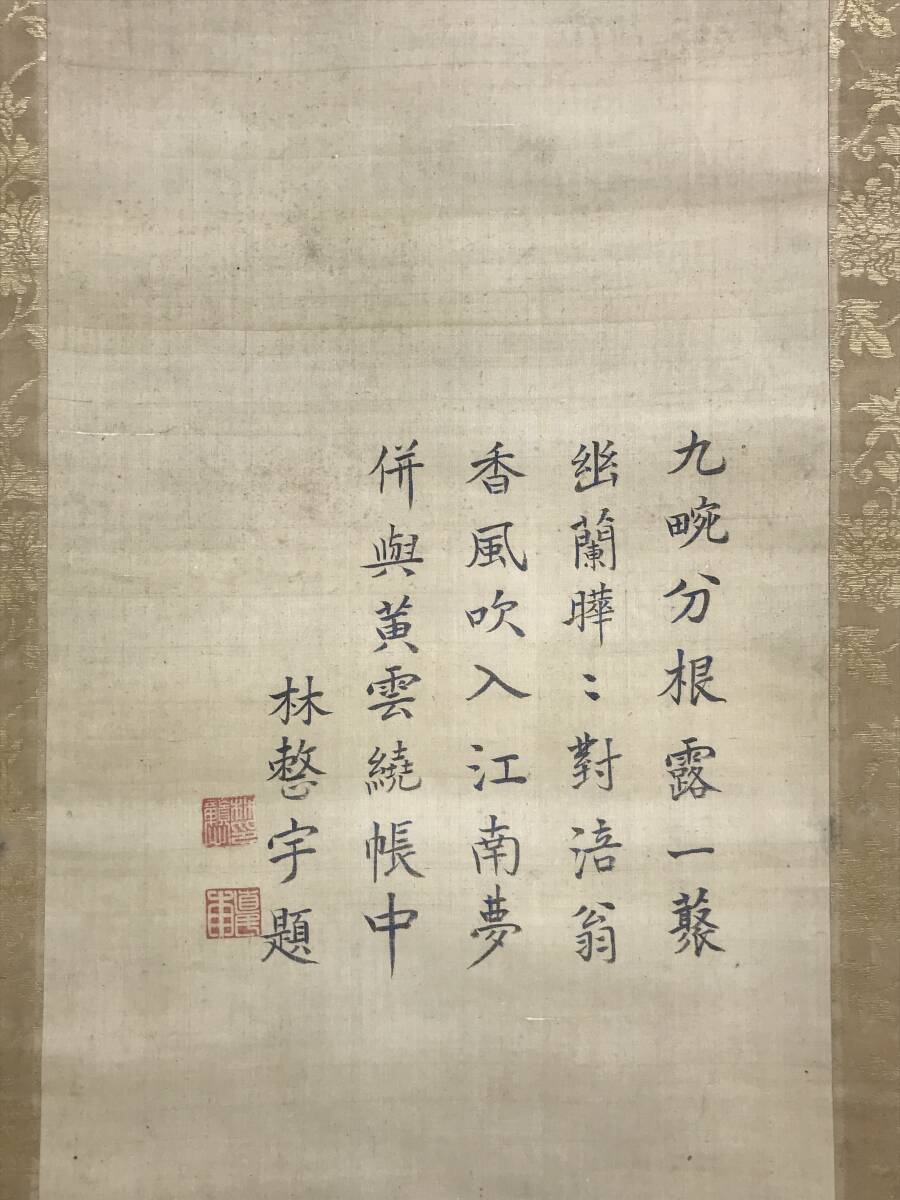 九畹分根露一藂
幽蘭曄〻對涪翁
香風吹入江南夢
併與黃雲繞帳中
林整宇題